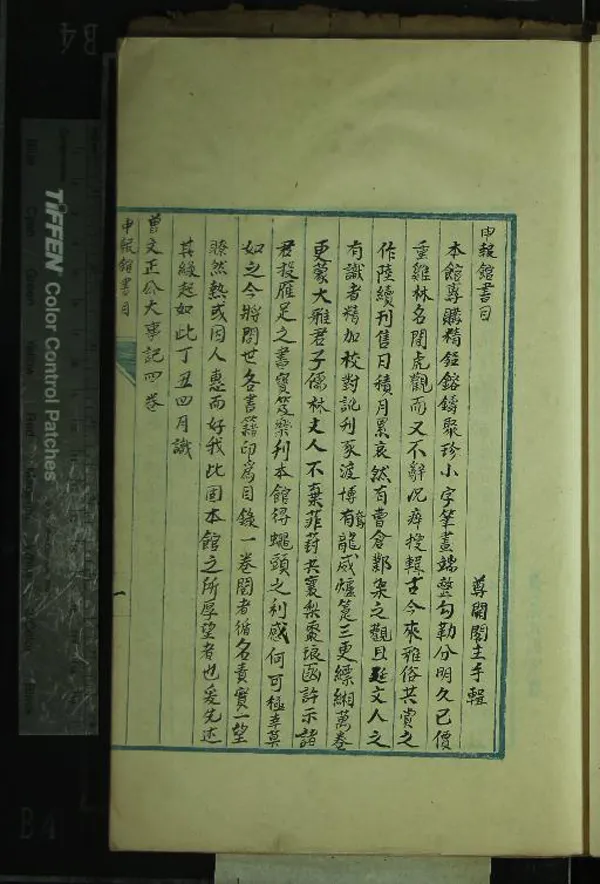 申報館書目
尊聞閣主手輯
本館專購精鉛鎔鑄聚珍小字筆畫端整勾勒分明久已價
重雞林名聞虎觀而又不辭況瘁搜輯古今來雅俗共賞之
作陸續刊售日積月累裒然有曹倉鄴架之觀且延文人之
有識者精加校對訛刊豕渡博奪龍威爐篆三更縹緗萬卷
更蒙大雅君子儒林文人不棄菲葑共襄梨棗琅函許示諸
君投雁足之書寶笈樂刊本館得蠅頭之利感何可極幸莫
如之今將閣世各書籍印為目錄一卷閱者循名責實一望
瞭然熟或因人惠而好我此固本館之所厚望者也爰先述
其緣起如此丁丑四月識
曾文正公大事記四卷
申報館書目
一
TIFFEN Color Control Patches
B4
B4